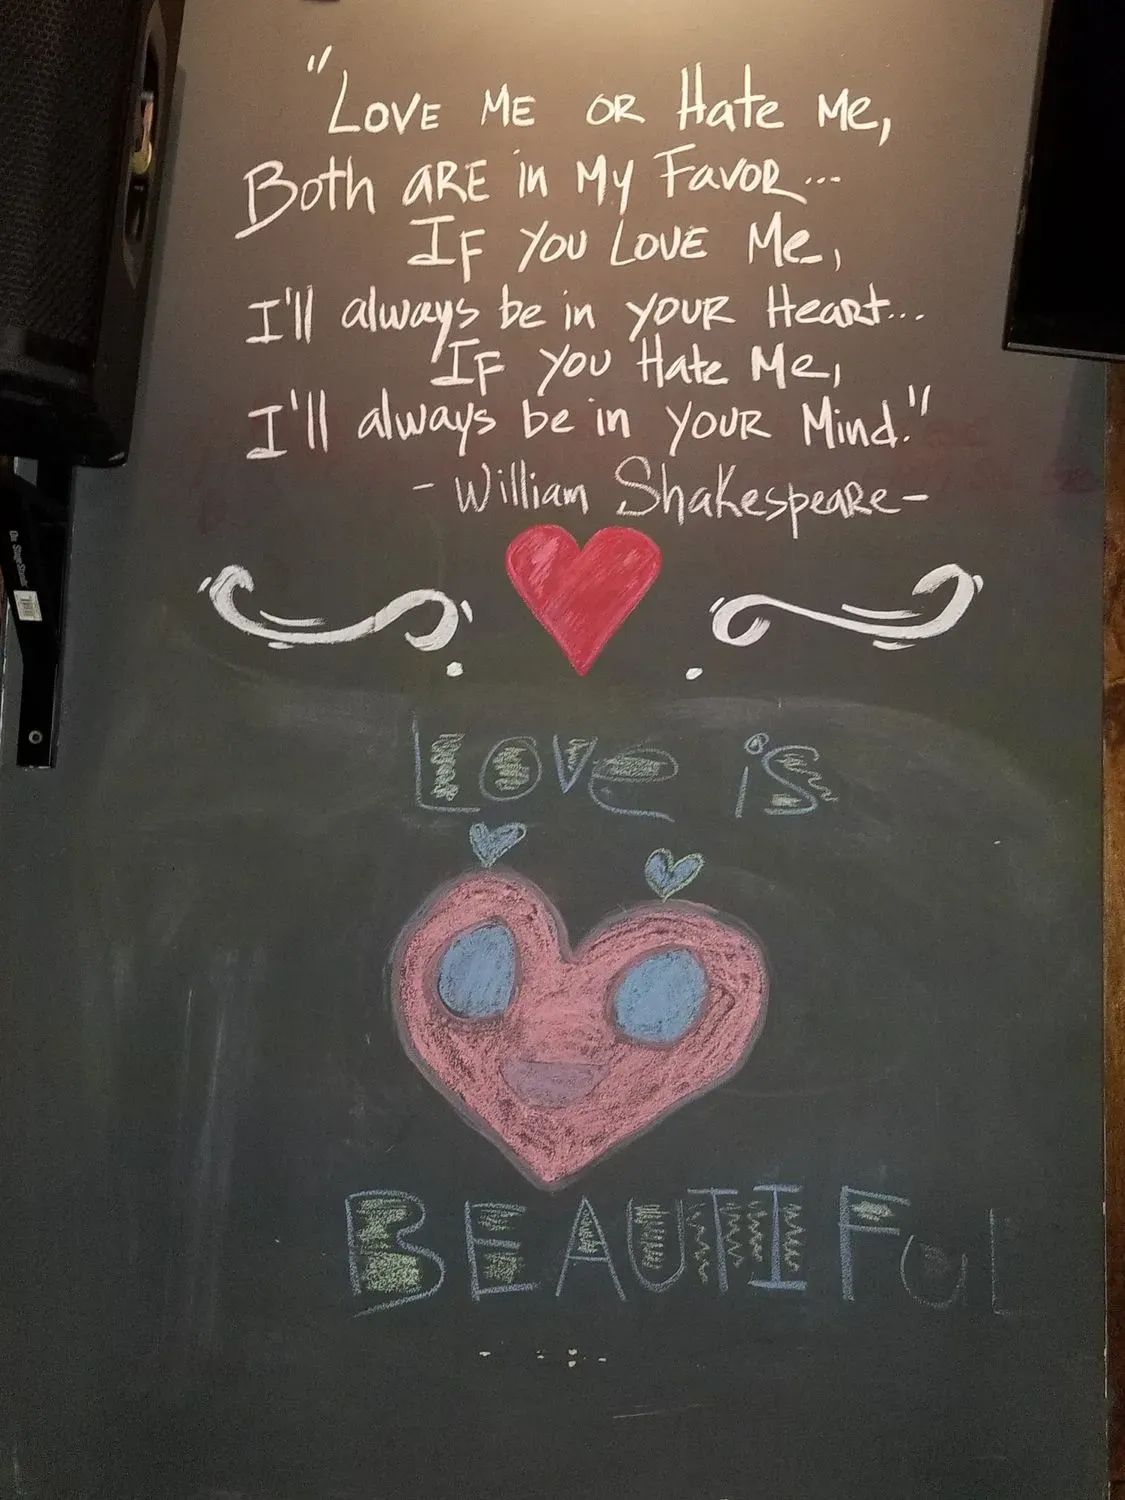 "Love me or Hate me,
Both are in my Favor...
If you Love me,
I'll always be in your Heart...
If you Hate me,
I'll always be in your Mind."
- William Shakespeare -
Love is
BEAUTIFUL